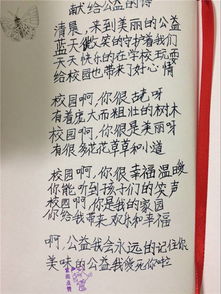 献给公益的诗
清晨，来到美丽的公益
蓝天微笑的守护着我们
天天快乐的在学校玩耍
给校园也带来了好心情
校园啊，你很古老呀
有着庞大而粗壮的树木
校园啊，你很是美丽呀
有很多花花草草和小道
校园啊，你很幸福温暖
你能听到孩子们的笑声
校园啊，你是我的家园
你给我带来欢乐和幸福
啊，公益我会永远的记住你
美味的公益我爱死你啦